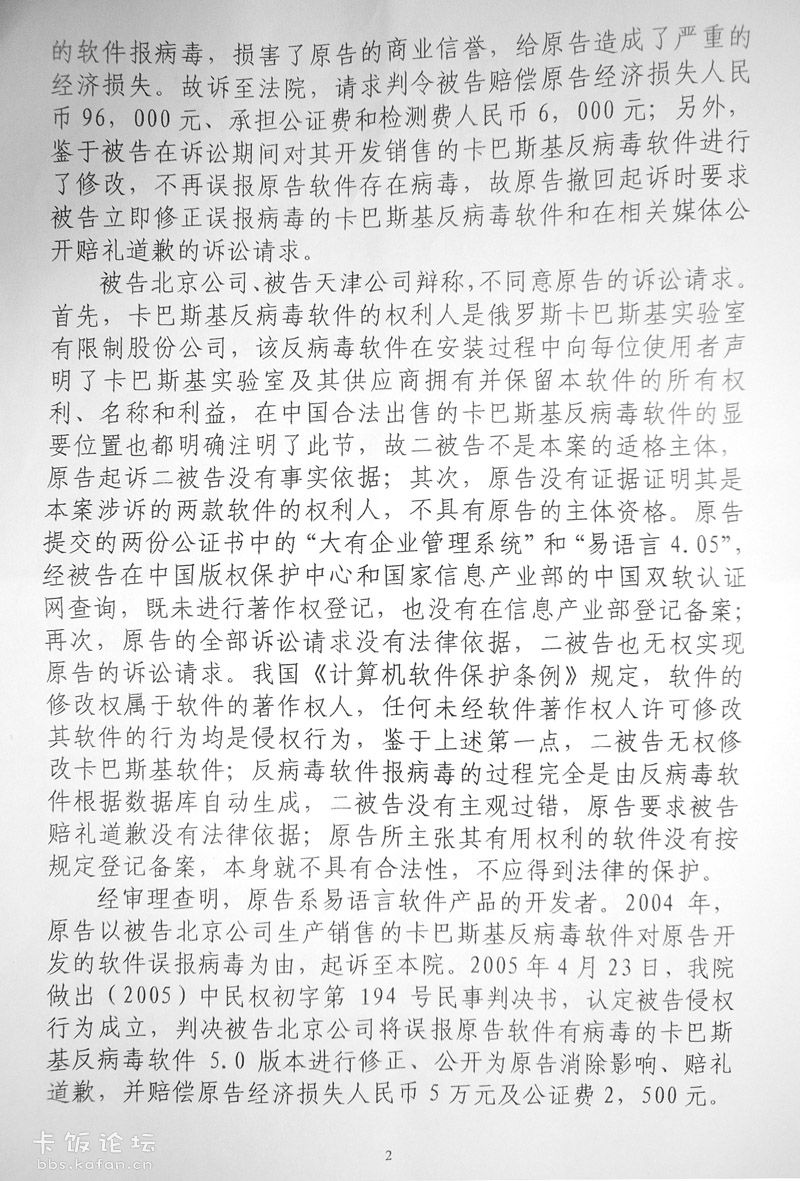 的软件报病毒，损害了原告的商业信誉，给原告造成了严重的
经济损失。故诉至法院，请求判令被告赔偿原告经济损失人民
币96，000元、承担公证费和检测费人民币6，000元；另外，
鉴于被告在诉讼期间对其开发销售的卡巴斯基反病毒软件进行
了修改，不再误报原告软件存在病毒，故原告撤回起诉时要求
被告立即修正误报病毒的卡巴斯基反病毒软件和在相关媒体公
开赔礼道歉的诉讼请求。
被告北京公司、被告天津公司辩称，不同意原告的诉讼请求。
首先，卡巴斯基反病毒软件的权利人是俄罗斯卡巴斯基实验室
有限制股份公司，该反病毒软件在安装过程中向每位使用者声
明了卡巴斯基实验室及其供应商拥有并保留本软件的所有权
利、名称和利益，在中国合法出售的卡巴斯基反病毒软件的显
要位置也都明确注明了此节，故二被告不是本案的适格主体，
原告起诉二被告没有事实依据；其次，原告没有证据证明其是
本案涉诉的两款软件的权利人，不具有原告的主体资格。原告
提交的两份公证书中的“大有企业管理系统”和“易语言4.05”，
经被告在中国版权保护中心和国家信息产业部的中国双软认证
网查询，既未进行著作权登记，也没有在信息产业部登记备案；
再次，原告的全部诉讼请求没有法律依据，二被告也无权实现
原告的诉讼请求。我国《计算机软件保护条例》规定，软件的
修改权属于软件的著作权人，任何未经软件著作权人许可修改
其软件的行为均是侵权行为，鉴于上述第一点，二被告无权修
改卡巴斯基软件；反病毒软件报病毒的过程完全是由反病毒软
件根据数据库自动生成，二被告没有主观过错，原告要求被告
赔礼道歉没有法律依据；原告所主张其有用权利的软件没有按
规定登记备案，本身就不具有合法性，不应得到法律的保护。
经审理查明，原告系易语言软件产品的开发者。2004 年，
原告以被告北京公司生产销售的卡巴斯基反病毒软件对原告开
发的软件误报病毒为由，起诉至本院。2005年4月23日，我院
做出（2005）中民权初字第 194 号民事判决书，认定被告侵权
行为成立，判决被告北京公司将误报原告软件有病毒的卡巴斯
基反病毒软件 5.0 版本进行修正、公开为原告消除影响、赔礼
道歉，并赔偿原告经济损失人民币5万元及公证费2，500元。
卡饭论坛
bbs.kafan.cn
2